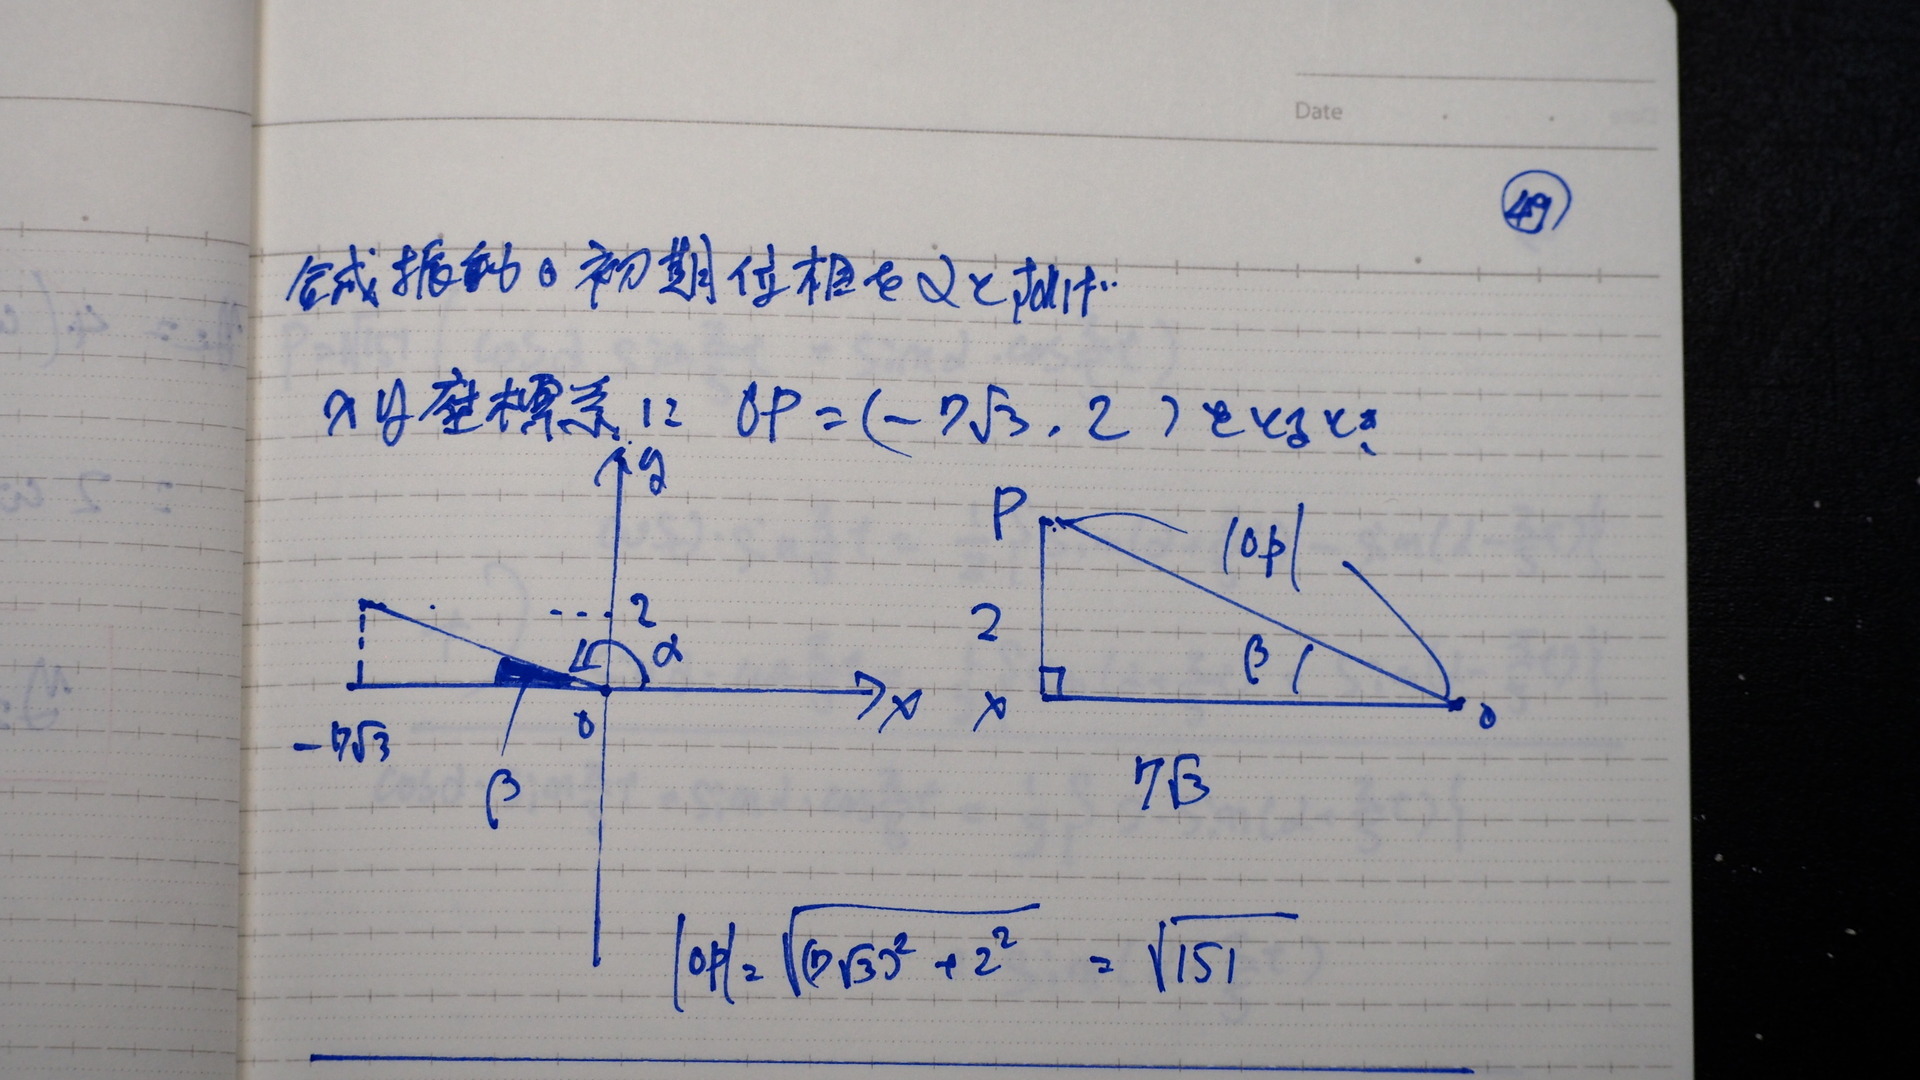 Date
49
合成振動の初期位相をαとおけば
xy座標系に OP=(-7√3, 2)をとると
y
P
|OP|
2
2
α
β
x
x
0
0
-7√3
7√3
β
|OP| = √(7√3)² + 2² = √151